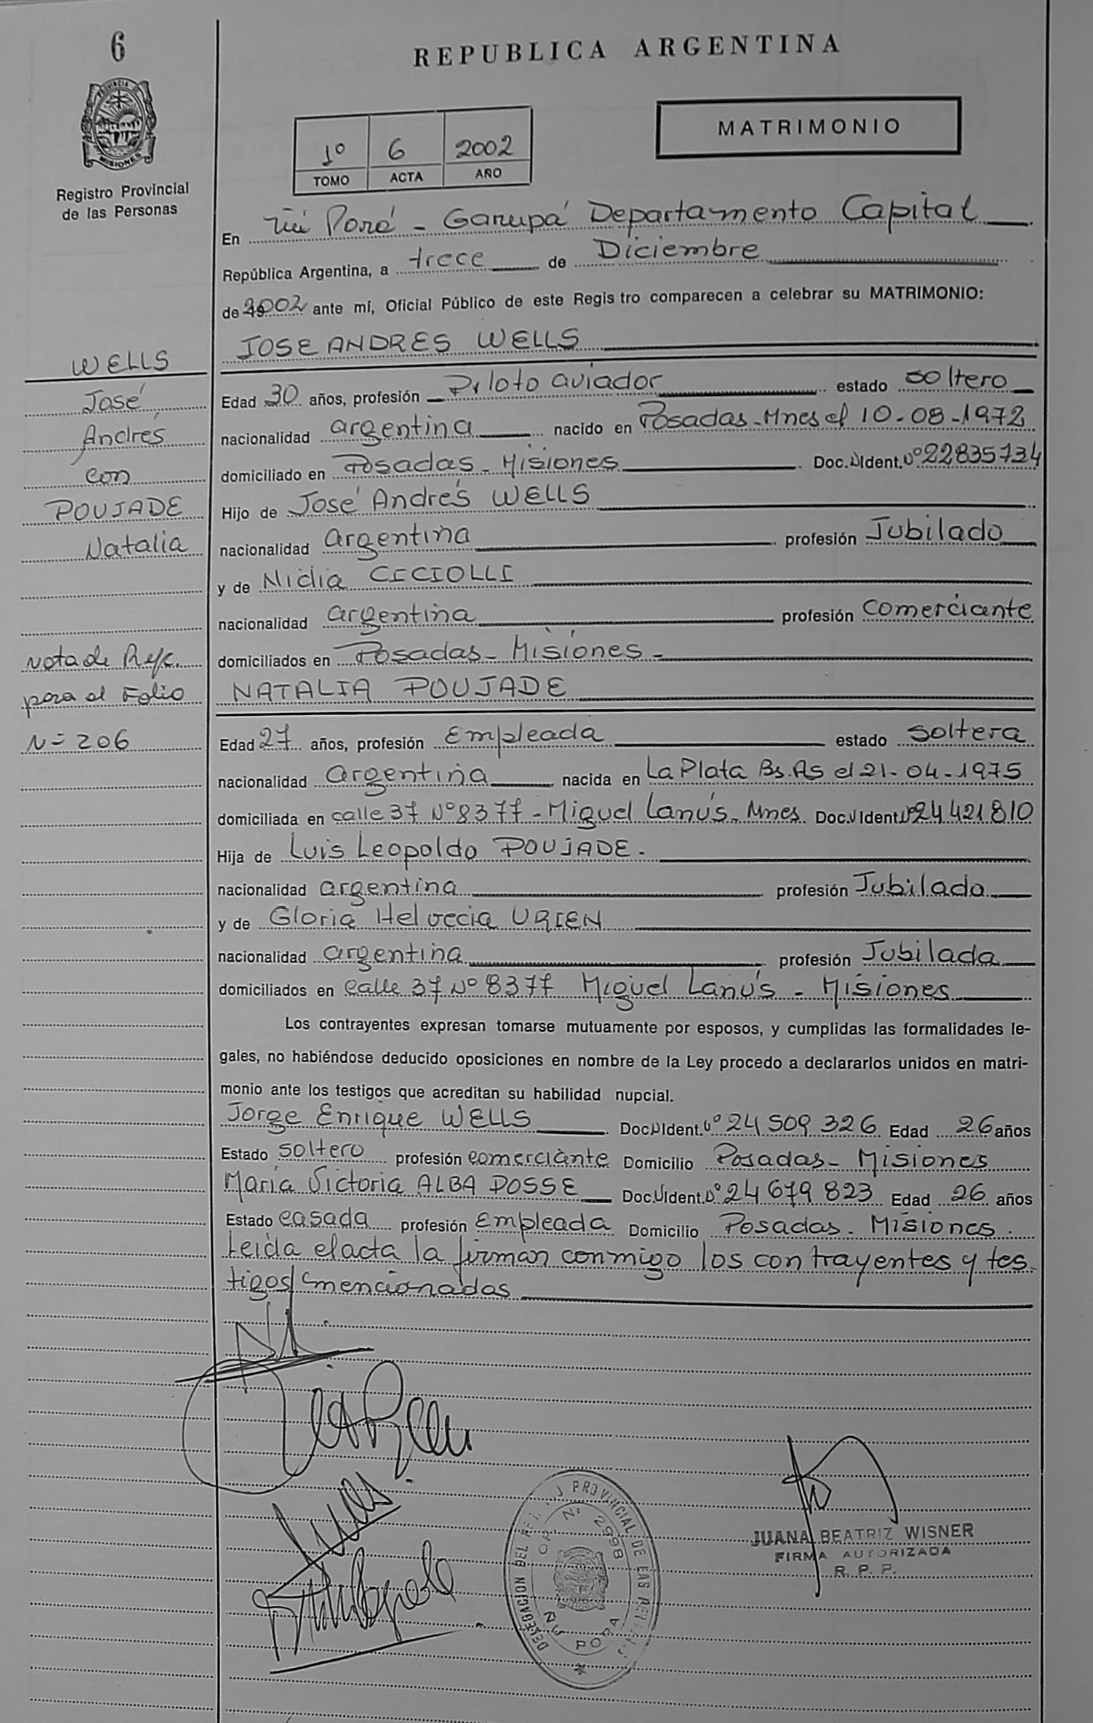 6
REPUBLICA ARGENTINA
PROVINCIA DE
MISIONES
Registro Provincial
de las Personas
MATRIMONIO
1º 6 2002
TOMO ACTA AÑO
En Ñú Porá - Garupá Departamento Capital
República Argentina, a trece de Diciembre
de 2002 ante mí, Oficial Público de este Registro comparecen a celebrar su MATRIMONIO:
JOSE ANDRES WELLS
WELLS
José
Andrés
con
POUJADE
Natalia
Nota de Ref.
para el Folio
N= 206
Edad 30 años, profesión Piloto aviador estado soltero
nacionalidad argentina nacido en Posadas-Mnes el 10-08-1972
domiciliado en Posadas - Misiones Doc. Ident. Nº 22835734
Hijo de José Andrés WELLS
nacionalidad argentina profesión Jubilado
y de Nidia CICIOLLI
nacionalidad argentina profesión comerciante
domiciliados en Posadas - Misiones -
NATALIA POUJADE
Edad 27 años, profesión Empleada estado soltera
nacionalidad argentina nacida en La Plata Bs.As el 21-04-1975
domiciliada en calle 37 Nº 8377 - Miguel Lanús - Mnes. Doc. Ident Nº 24421810
Hija de Luis Leopoldo POUJADE.
nacionalidad argentina profesión Jubilada
y de Gloria Helvecia URIEN
nacionalidad argentina profesión Jubilada
domiciliados en calle 37 Nº 8377 Miguel Lanús - Misiones
Los contrayentes expresan tomarse mutuamente por esposos, y cumplidas las formalidades le-
gales, no habiéndose deducido oposiciones en nombre de la Ley procedo a declararlos unidos en matri-
monio ante los testigos que acreditan su habilidad nupcial.
Jorge Enrique WELLS Doc. Ident. Nº 24509326 Edad 26 años
Estado soltero profesión comerciante Domicilio Posadas - Misiones
María Victoria ALBA POSSE Doc. Ident. Nº 24679823 Edad 26 años
Estado casada profesión Empleada Domicilio Posadas - Misiones.
Leida el acta la firman conmigo los contrayentes y tes
tigos mencionadas
JUANA BEATRIZ WISNER
FIRMA AUTORIZADA
R. P. P.
DELEGACION DEL PROVINCIAL DE LAS
Nº 2998
ÑU PORA